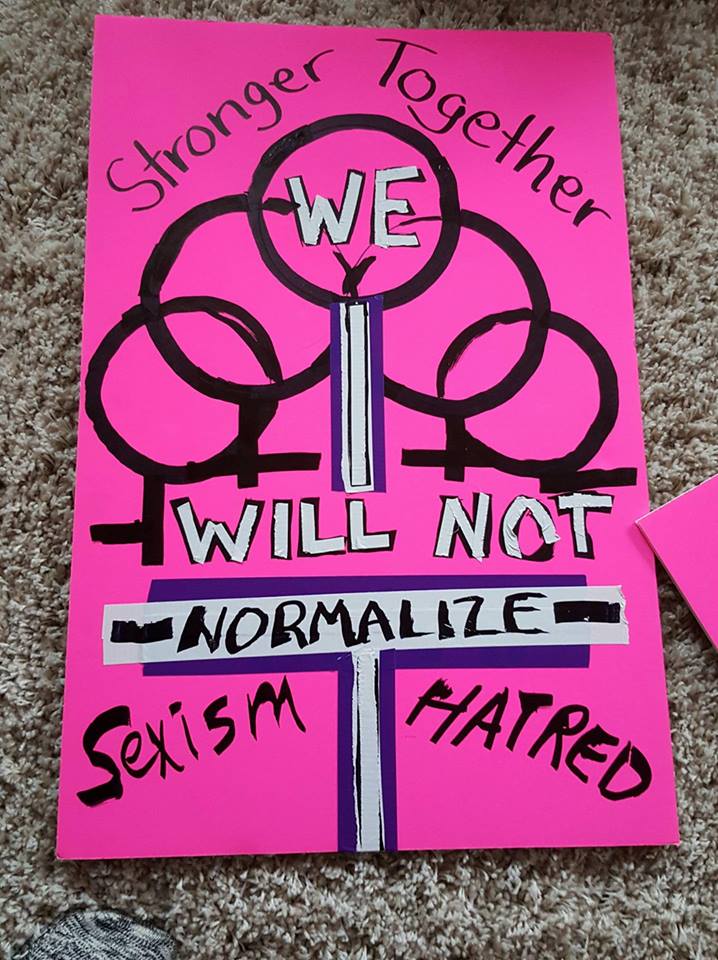 Stronger Together
WE
WILL NOT
-NORMALIZE-
Sexism HATRED